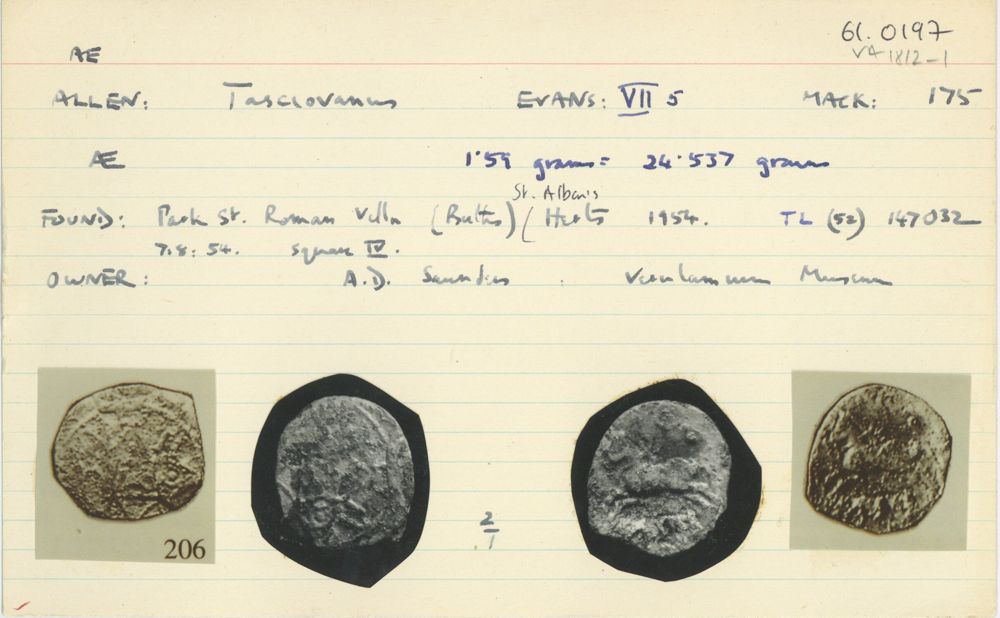 61.0197
Æ VA 1812-1
ALLEN: Tasciovanus EVANS: VII 5 MACK: 175
Æ 1·59 grams = 24·537 grains
St. Albans
FOUND: Park St. Roman Villa (Baths) (Herts 1954. TL (52) 147032
7.8.54. Square IV.
OWNER: A.D. Saunders. Verulamium Museum
206
2/1